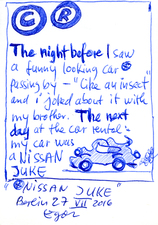 C R
The night before I saw
a funny looking car
passing by - "Like an insect
and i joked about it with
my brother. The next
day at the car rental:
my car was
a NISSAN
JUKE
"NISSAN JUKE"
Berlin 27 VII 2016